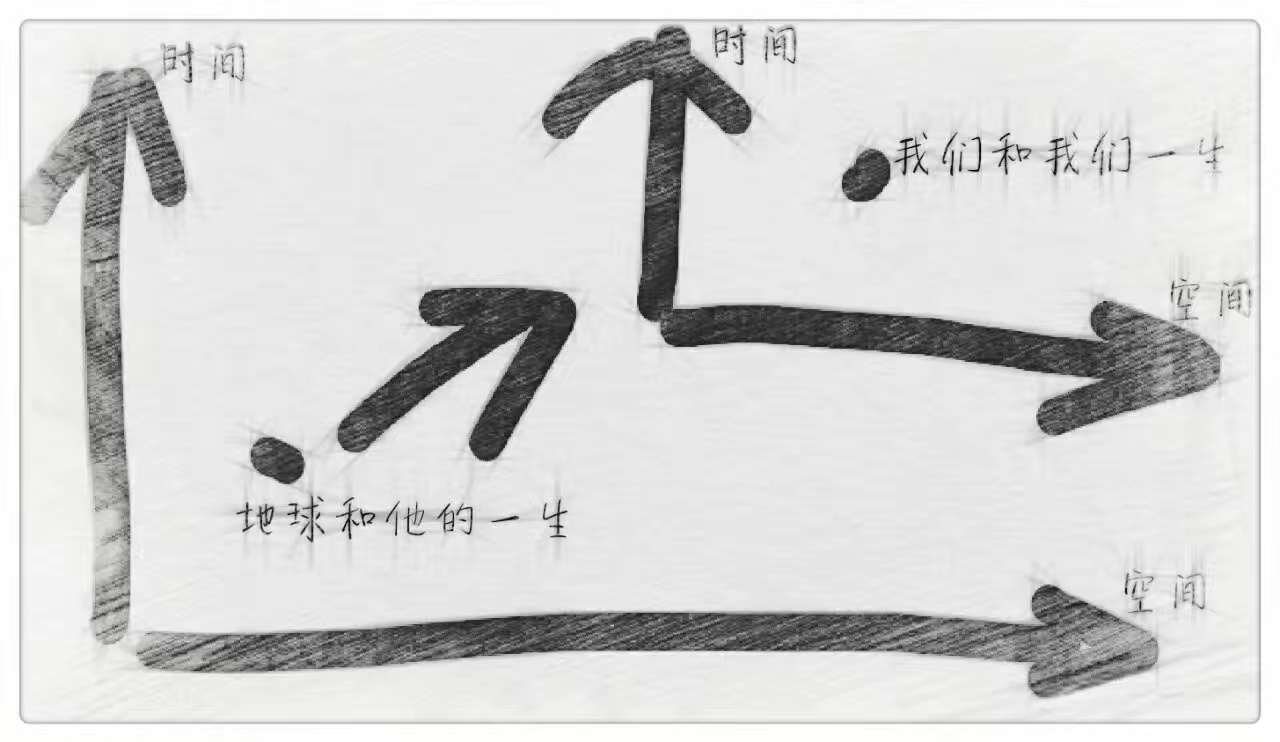 时间
时间
我们和我们一生
空间
地球和他的一生
空间